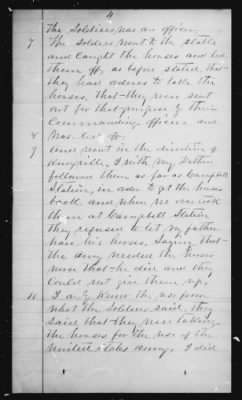 4
the Soldiers, was an officer
7 The Soldiers went to the stable
and caught the horses and led
them off, as before stated, that
they had orders to take the
horses, that they were sent
out for that purpose by their
Commanding officer and
8 was led off
9 And went in the direction of
Knoxville, I with my father
followed them as far as Campbell
Station, in order to get the horses
back, and when we over took
them at Campbell Station
they refused to let my father
have his horses, Saying that
the army needed the horses
more than he did and they
could not give them up,
10 I only know the use from
what the Soldiers said, they
said that they were taking
the horses for the use of the
United States army. I did